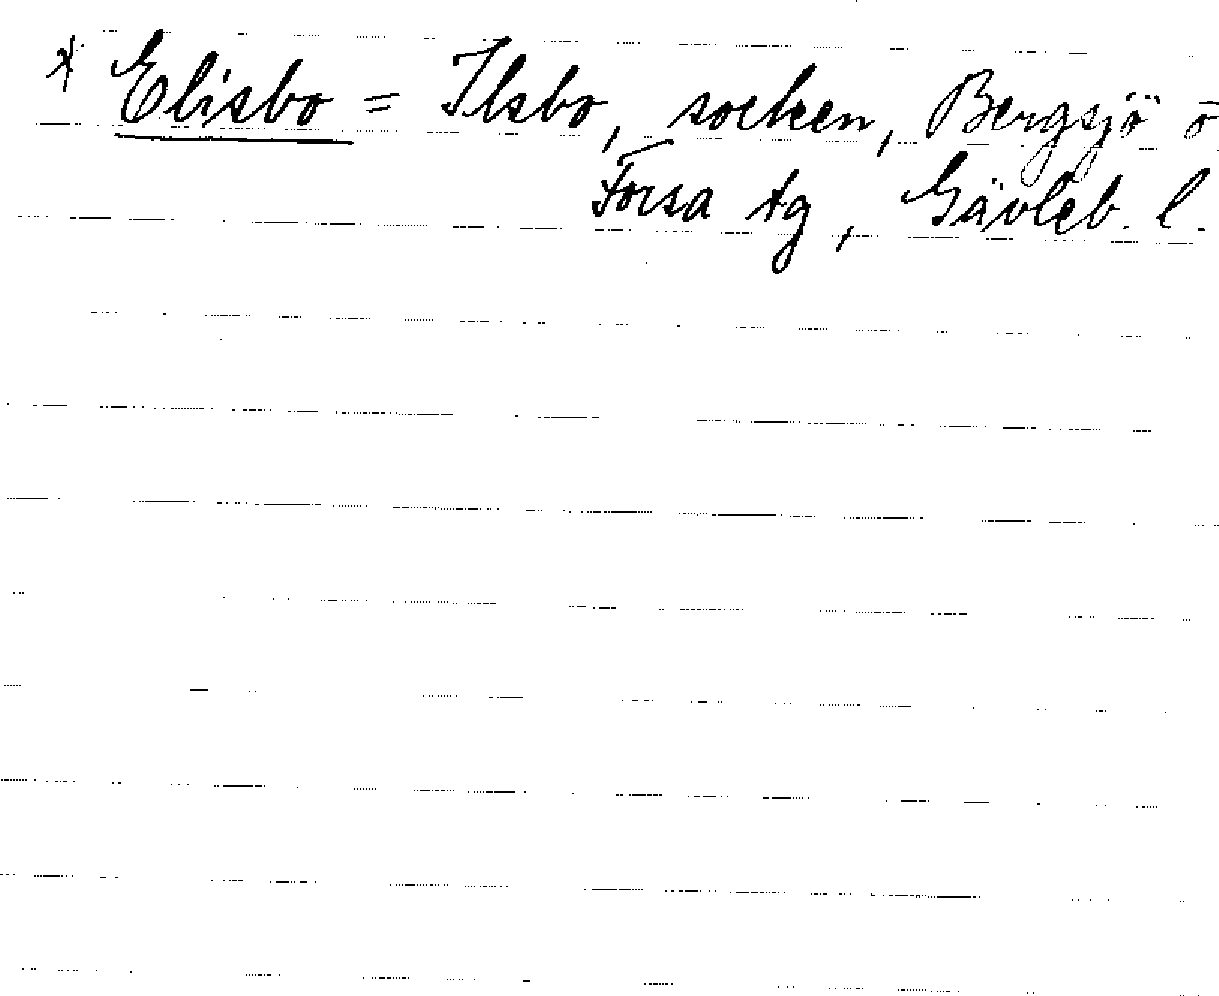 * Elisbo = Ilsbo, socken, Bergsjö o
Forsa tg, Gävleb. l.